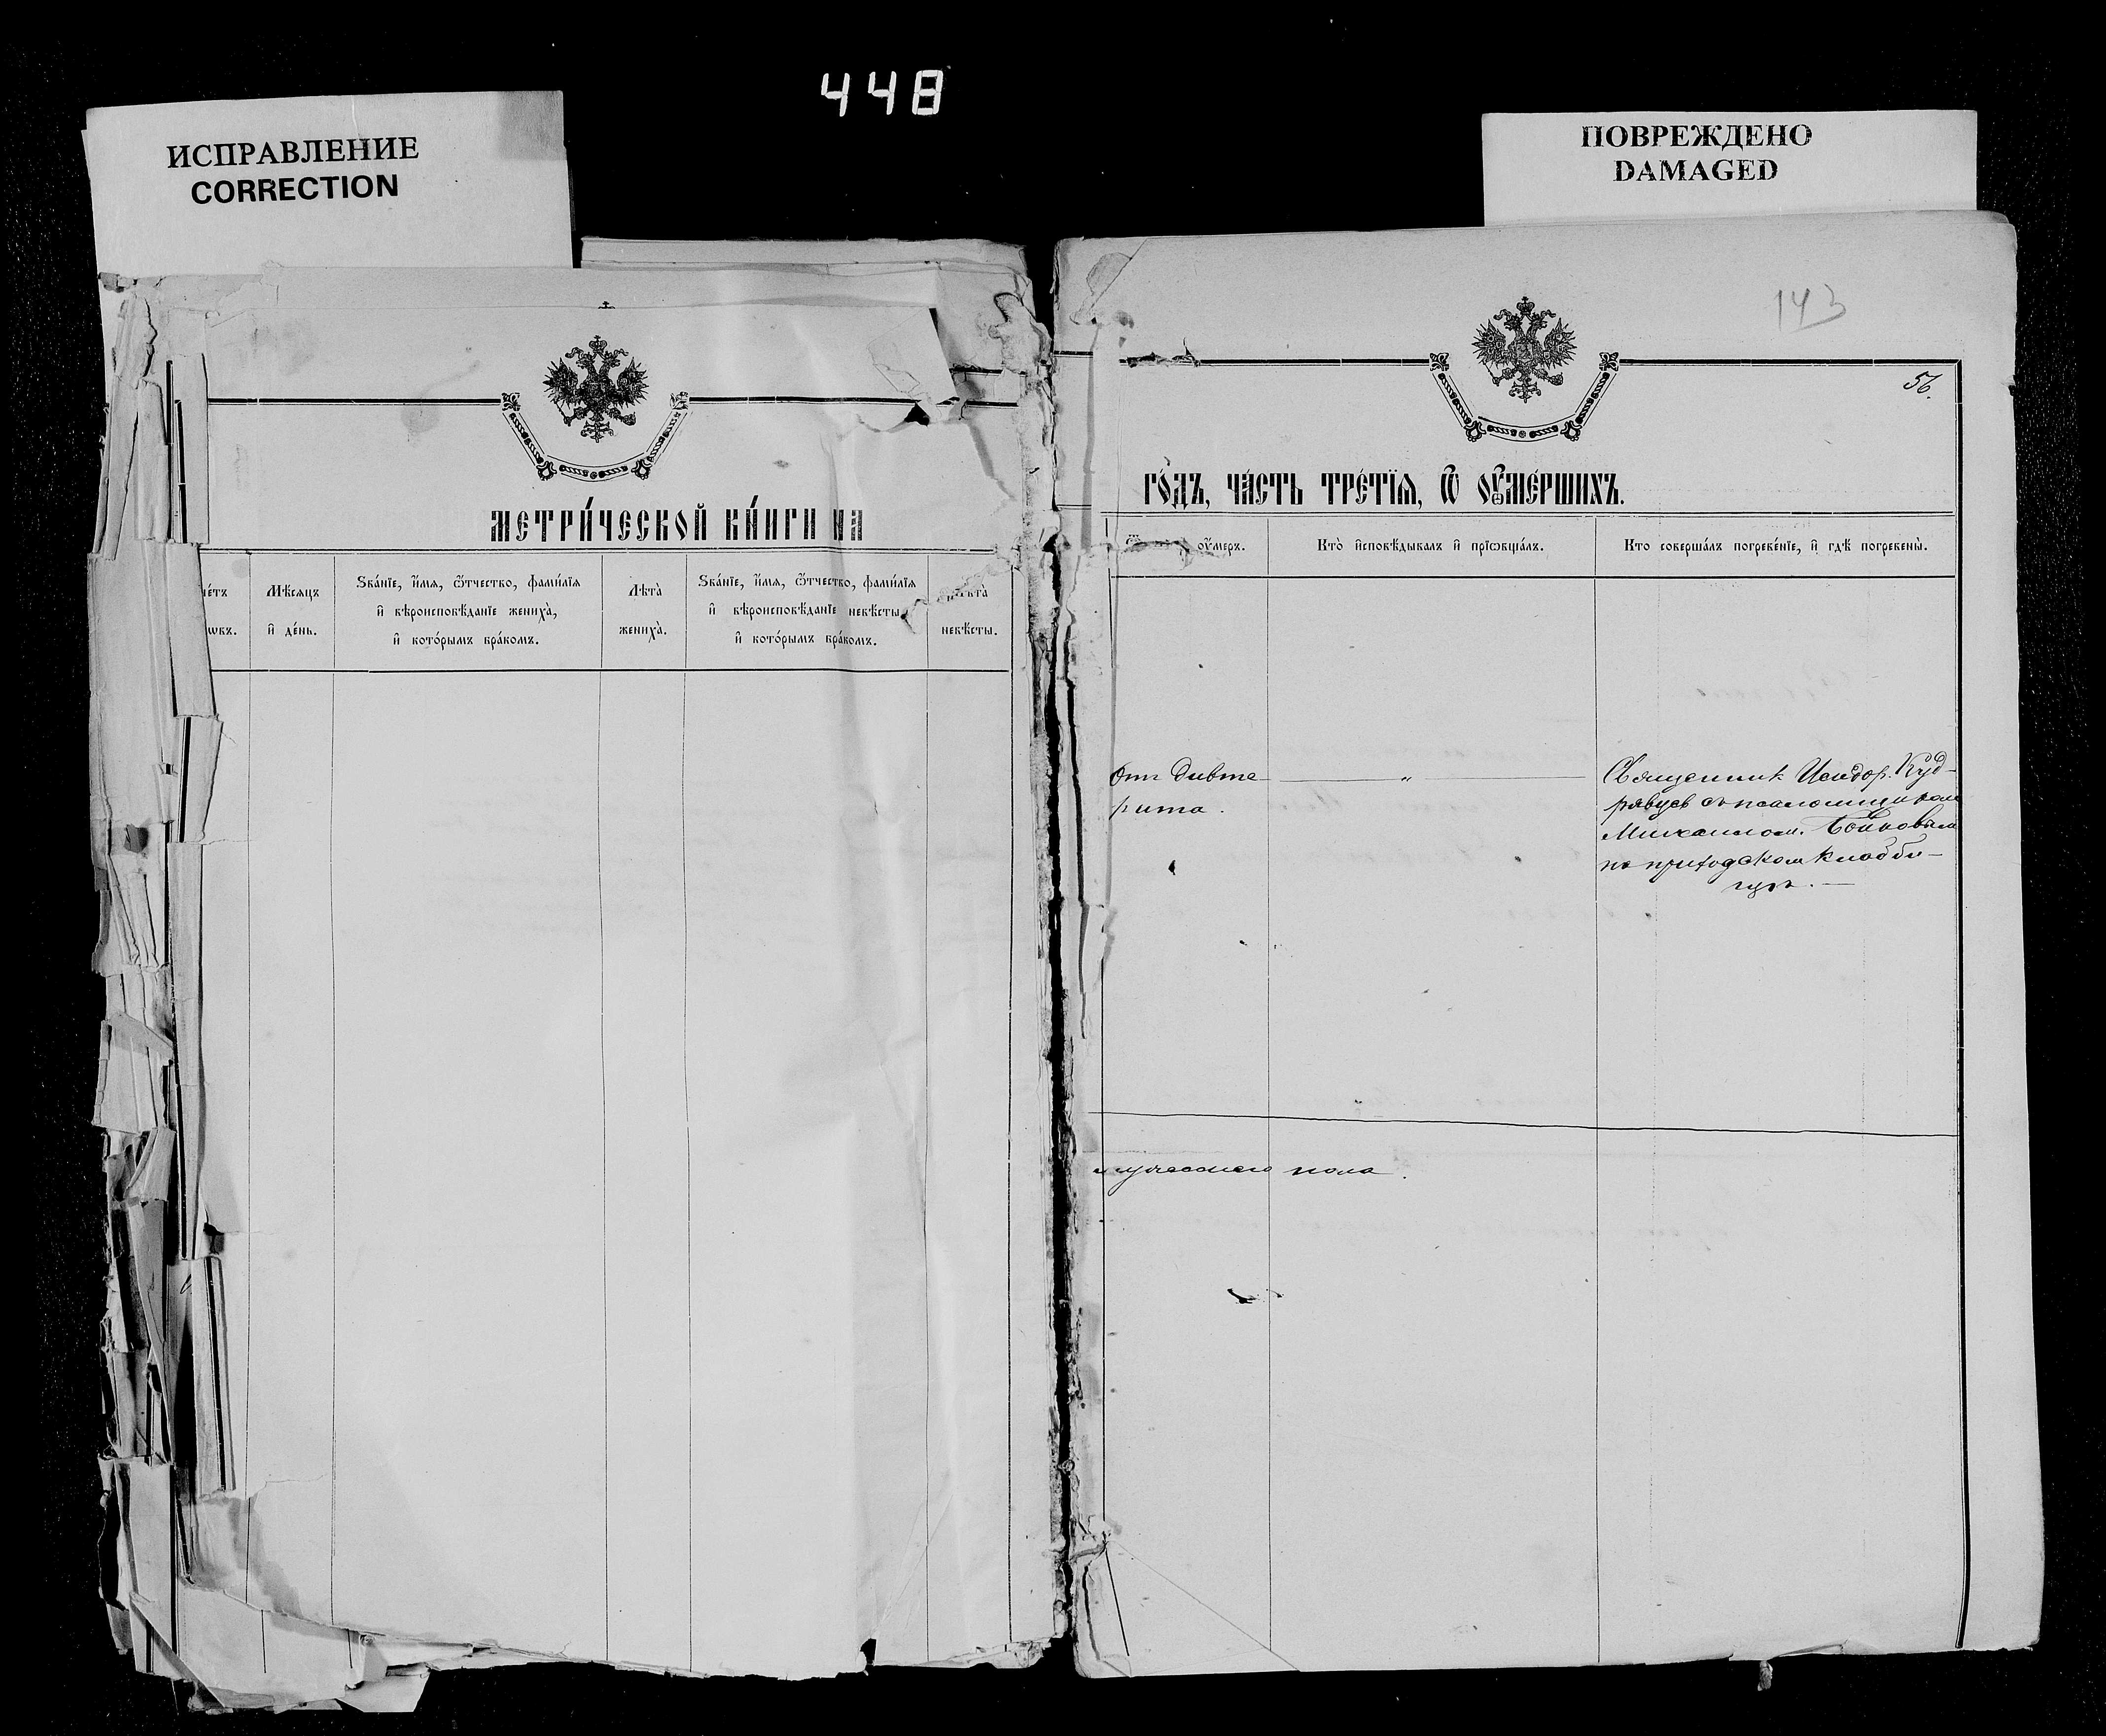 448
ИСПРАВЛЕНИЕ
CORRECTION
ПОВРЕЖДЕНО
DAMAGED
МЕТРИ́ЧЕСКОЙ КНИ́ГИ НА
Мѣсяцъ
и҆ де́нь.
Ѕва́нїе, и҆́мя, ѻ҆́тчество, фами́лїя
и҆ вѣроисповѣ́данїе жениха̀,
и҆ кото́рымъ бра́комъ.
Лѣта̀
жениха̀.
Ѕва́нїе, и҆́мя, ѻ҆́тчество, фами́лїя
и҆ вѣроисповѣ́данїе невѣ́сты,
и҆ кото́рымъ бра́комъ.
невѣ́сты.
143
56.
ГО́ДЪ, ЧА́СТЬ ТРЕ́ТЇЯ, Ѡ҆ ОУ҆МЕ́РШИХЪ.
оу҆́меръ.
Кто̀ и҆сповѣ́дывалъ и҆ прїѡбща́лъ.
Кто соверша́лъ погребе́нїе, и҆ гдѣ̀ погребены̀.
Отъ Дифте
рита.
"
Священник Исидор. Куд-
рявцев съ псаломщиком
Михаилом. Бойковым
на приходском кладби-
щѣ. —
мужескаго пола.